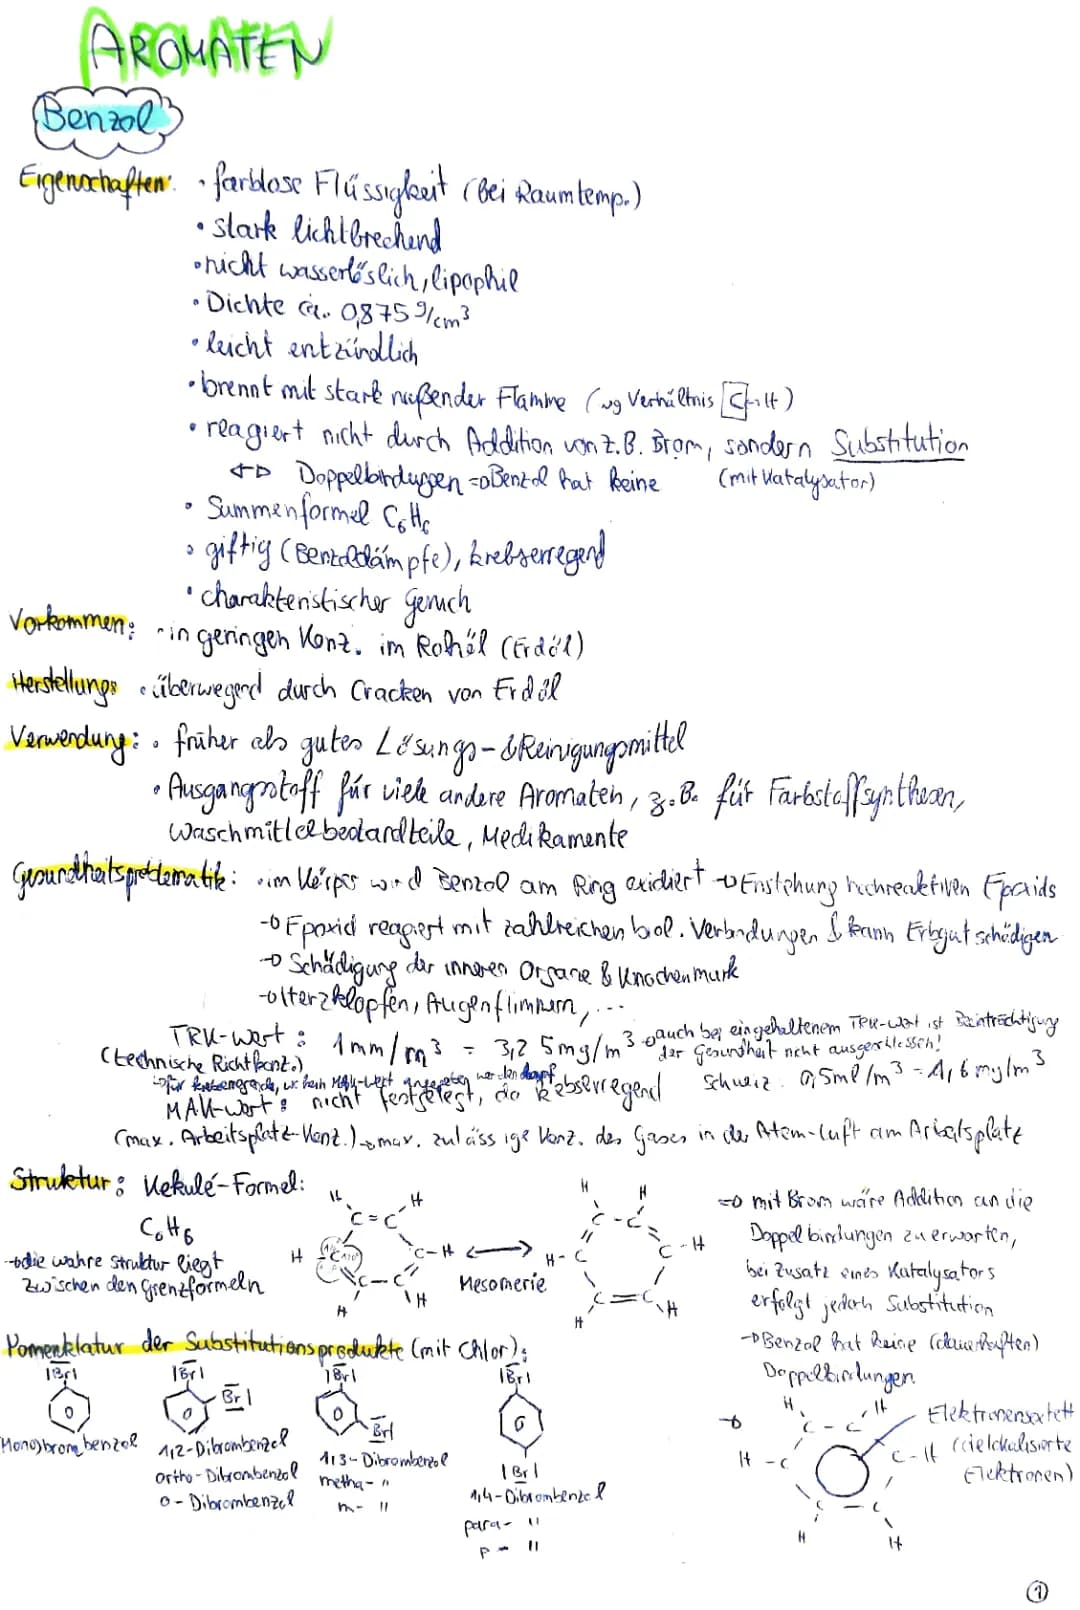 AROMATEN
Benzol
Eigenschaften: • farblose Flüssigkeit (bei Raumtemp.)
• stark lichtbrechend
• nicht wasserlöslich, lipophil
• Dichte ca. 0,875 g/cm³
• leicht entzündlich
• brennt mit stark rußender Flamme (wg Verhältnis C-H)
• reagiert nicht durch Addition von z.B. Brom, sondern Substitution
Doppelbindungen => Benzol hat keine (mit Katalysator)
• Summenformel C₆H₆
• giftig (Benzoldämpfe), krebserregend
• charakteristischer Geruch
Vorkommen: • in geringen Konz. im Rohöl (Erdöl)
Herstellung: • überwiegend durch Cracken von Erdöl
Verwendung: • früher als gutes Lösungs- & Reinigungsmittel
• Ausgangsstoff für viele andere Aromaten, z.B. für Farbstoffsynthesen,
Waschmittelbestandteile, Medikamente
Gesundheitsproblematik: • im Körper wird Benzol am Ring oxidiert → Enstehung hochreaktiven Epoxids
→ Epoxid reagiert mit zahlreichen biol. Verbindungen & kann Erbgut schädigen
→ Schädigung der inneren Organe & Knochenmark
→ Herzklopfen, Augenflimmern, ...
TRK-Wert: 1mm/m³ = 3,25mg/m³ → auch bei eingehaltenem TRK-Wert ist Beinträchtigung
(technische Richtkonz.) der Gesundheit nicht ausgeschlossen!
→ für krebserregende, wo kein MAK-Wert angegeben werden darf
Schweiz: 0,5ml/m³ = 1,6 mg/m³
MAK-Wert: nicht festgelegt, da krebserregend
(max. Arbeitsplatz-Konz.) → max. zulässige Konz. des Gases in der Atem-luft am Arbeitsplatz
Struktur: Kekulé-Formel:
C₆H₆
→ die wahre Struktur liegt
zwischen den Grenzformeln
H H
C = C
H C C - H
C - C
H H
Mesomerie
H H
C - C
H - C C - H
C = C
H H
=> mit Brom wäre Addition an die
Doppelbindungen zu erwarten,
bei Zusatz eines Katalysators
erfolgt jedoch Substitution
→ Benzol hat keine (dauerhaften)
Doppelbindungen
Nomenklatur der Substitutionsprodukte (mit Chlor):
|Br| |Br| |Br| |Br|
Br| Br|
|Br|
(Mono)brombenzol
1,2-Dibrombenzol
ortho-Dibrombenzol
o-Dibrombenzol
1,3-Dibrombenzol
metha- "
m- "
1,4-Dibrombenzol
para- "
p- "
H H
C - C
H - C C - H
C - C
H H
Elektronensextett
(delokalisierte
Elektronen)
1